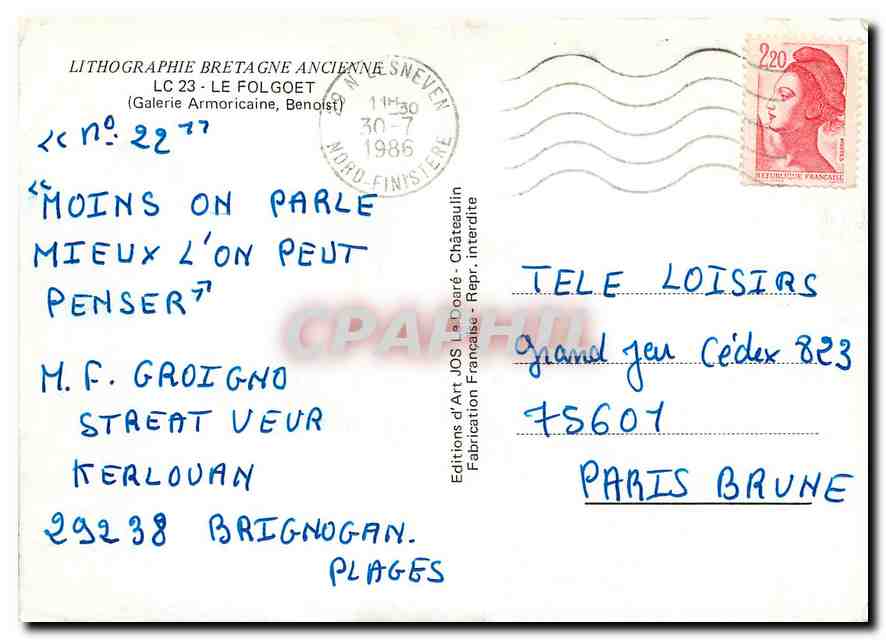 LITHOGRAPHIE BRETAGNE ANCIENNE
LC 23 - LE FOLGOET
(Galerie Armoricaine, Benoist)
LESNEVEN
11H30
30-7
1986
NORD-FINISTERE
2,20
POSTES
REPUBLIQUE FRANÇAISE
<< No 22 >>
<< MOINS ON PARLE
MIEUX L'ON PEUT
PENSER >>
M. F. GROIGNO
STREAT VEUR
KERLOUAN
29238 BRIGNOGAN.
PLAGES
Editions d'Art JOS Le Doaré - Châteaulin
Fabrication Française - Repr. interdite
CPAPHIL
TELE LOISIRS
grand jeu Cédex 823
75601
PARIS BRUNE